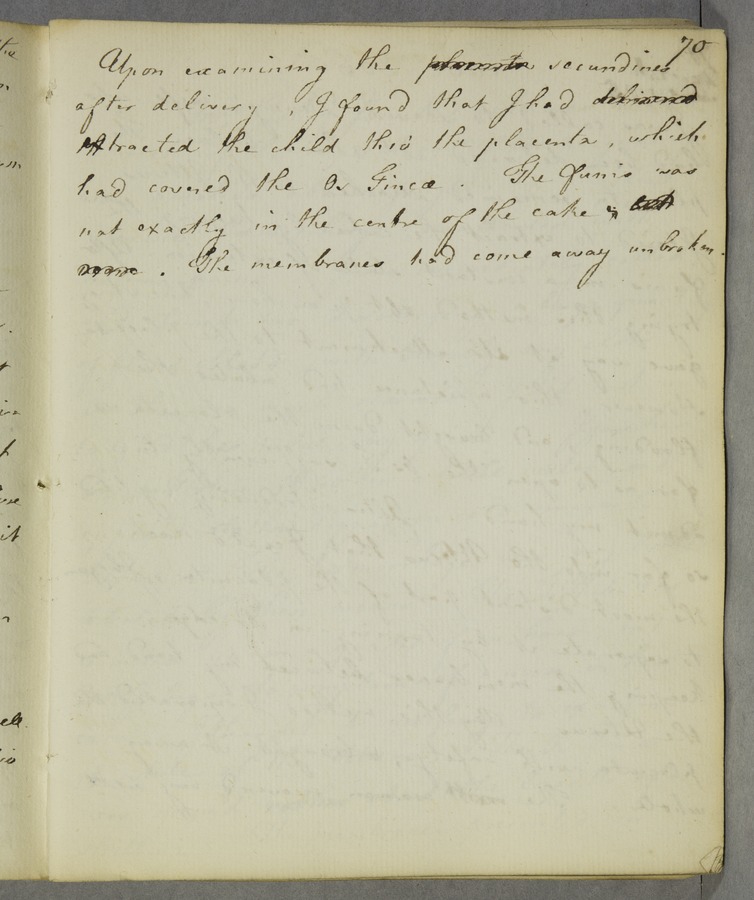 70
Upon examining the placenta secundines
after delivery, I found that I had delivered
extracted the child thro the placenta, which
had covered the Os Tincæ. The funis was
not exactly in the centre of the cake;
. The membranes had come away unbroken.